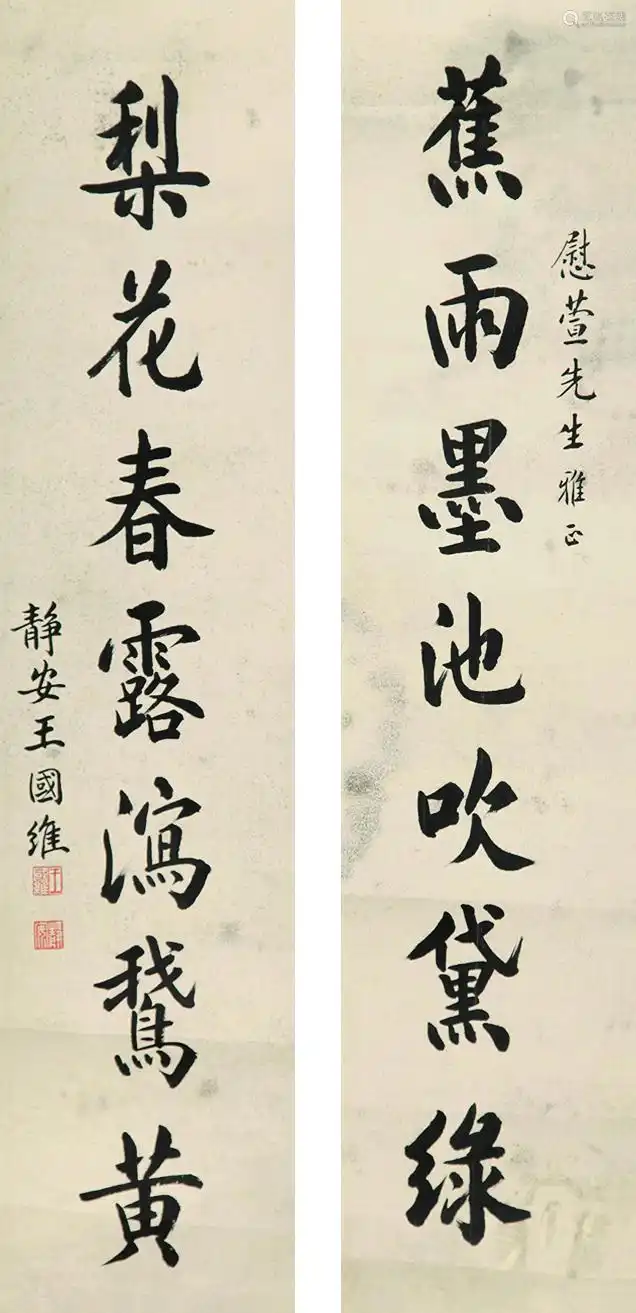 慰萱先生雅正
蕉雨墨池吹黛綠
梨花春露瀉鵞黄
静安王國維